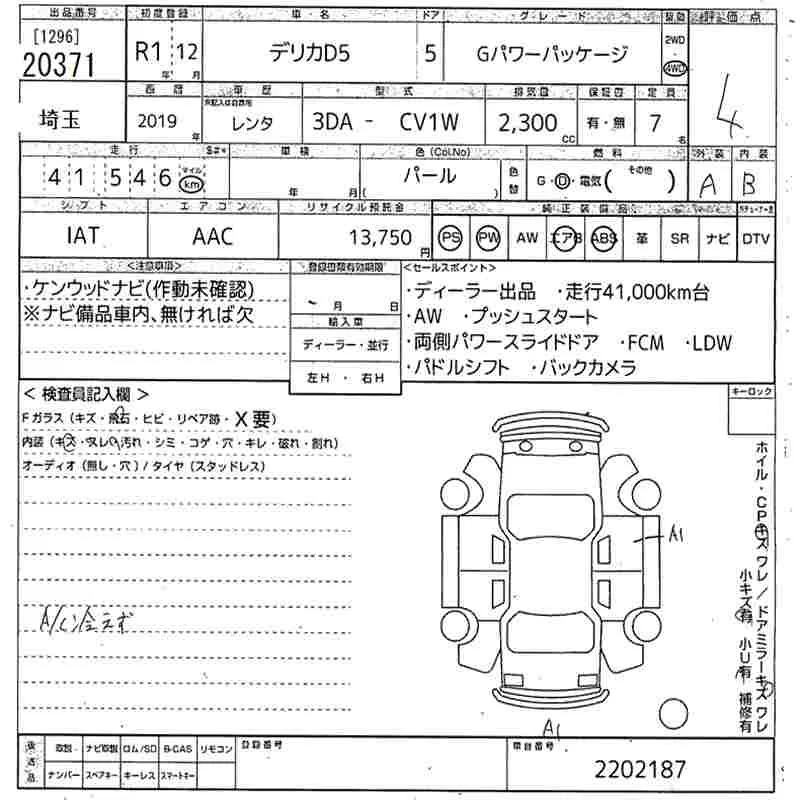 出品番号 初度登録 車・名 ドア グレード 駆動 評価点
[1296]
20371 R1 12 デリカD5 5 Gパワーパッケージ 2WD 4WD 4
年 月
西暦 車歴 型式 排気量 保証書 定員
埼玉 2019 年 レンタ 3DA - CV1W 2,300 CC 有・無 7 名
走行 車検 色(Col.No) 燃料 外装 内装
41 546 マイル km 年 月 パール ( ) 色替 G・D・電気( その他 ) A B
シフト エアコン リサイクル預託金 純正装備品
IAT AAC 13,750 円 PS PW AW エアB ABS 革 SR ナビ DTV
<注意事項> 登録書類有効期限 <セールスポイント>
・ケンウッドナビ(作動未確認) ・ディーラー出品 ・走行41,000km台
※ナビ備品車内、無ければ欠 月 日 ・AW ・プッシュスタート
輸入車 ・両側パワースライドドア ・FCM ・LDW
ディーラー・並行 ・パドルシフト ・バックカメラ
左H ・ 右H
< 検査員記入欄 > キーロック
Fガラス(キズ・飛石・ヒビ・リペア跡・X要)
内装(キズ・スレ・汚れ・シミ・コゲ・穴・キレ・破れ・割れ)
オーディオ(無し・穴)/タイヤ(スタッドレス)
A1
A/C冷えず
A1
ホイル・CPキズ ワレ/ドアミラーキズ ワレ
小キズ有 小U有 補修有
後送品 取説 ナビ取説 ロム/SD B-CAS リモコン 登録番号 車台番号
ナンバー スペアキー キーレス スマートキー 2202187